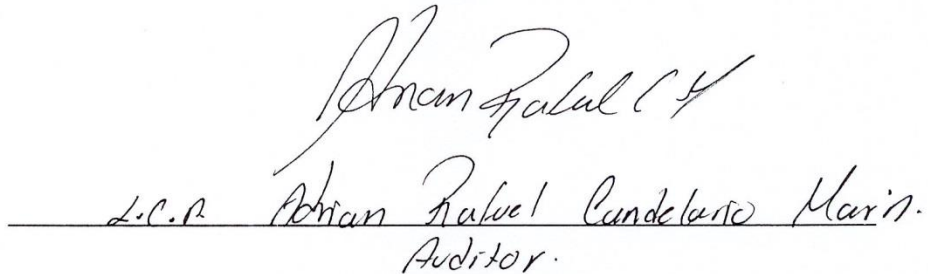 Adrian Rafael C M
L.C.P. Adrian Rafael Candelario Marin.
Auditor.